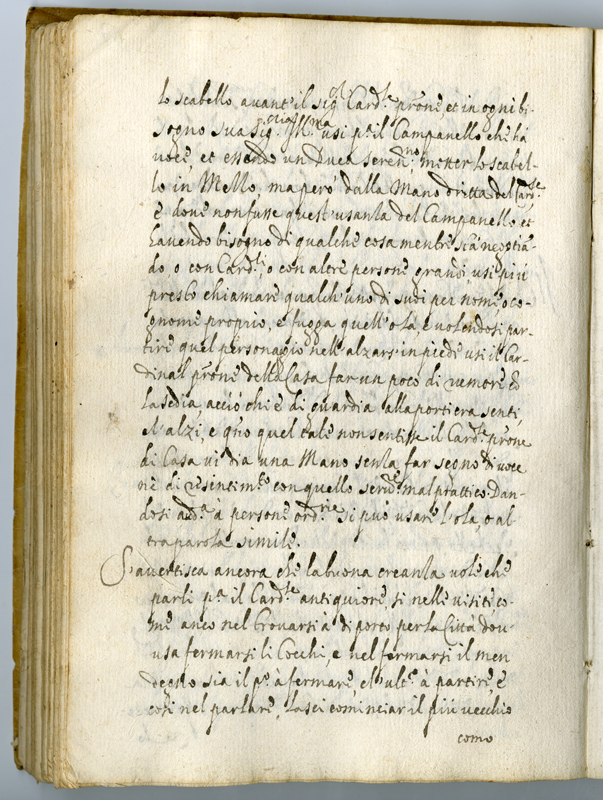 lo scabello, avant'il sig.r Card.le prõne, et in ogni bi-
sogno sua Sig.ria Ill.ma usi p.a il Campanello che hà
voce, et essendo un Duca seren.mo metter lo scabel-
lo in Mezzo, ma però dalla Mano dritta del Card.le
e dove non fusse quest'usanza del Campanello, et
havendo bisogno di qualche cosa mentre stà negotiã-
do, o con Card.li, o con altre persone grandi, usi più
presto chiamare qualch'uno di suoi per nome, o co-
gnome proprio, e fugga quell'olà, e volendosi par-
tire quel personaggio nell'alzarsi in piedi usi il Car-
dinal prõne della Casa far un poco di rumore cõ
la sedia, acciò chi è di guardia alla portiera senti,
et alzi, e qñdo quel tale non sentisse il Card.le prõne
di Casa vi dia una Mano senza far segno di voce
nè di risentim.to con quello serv.re mal prattico. Dan-
dosi aud.a à persone ord.rie si può usare l'ola, o al
tra parola simile.
S'avertisca ancora che la buona creanza vole che
parli p.a il Card.le antiquiore, si nelle visite co-
me anco nel trovarsi à diporto per la Città dov'
usa fermarsi li Cocchi, e nel fermarsi il men
degno sia il p.o à fermare, et ult.o à partire, e
così nel parlare, lasci cominciar il più vecchio
como